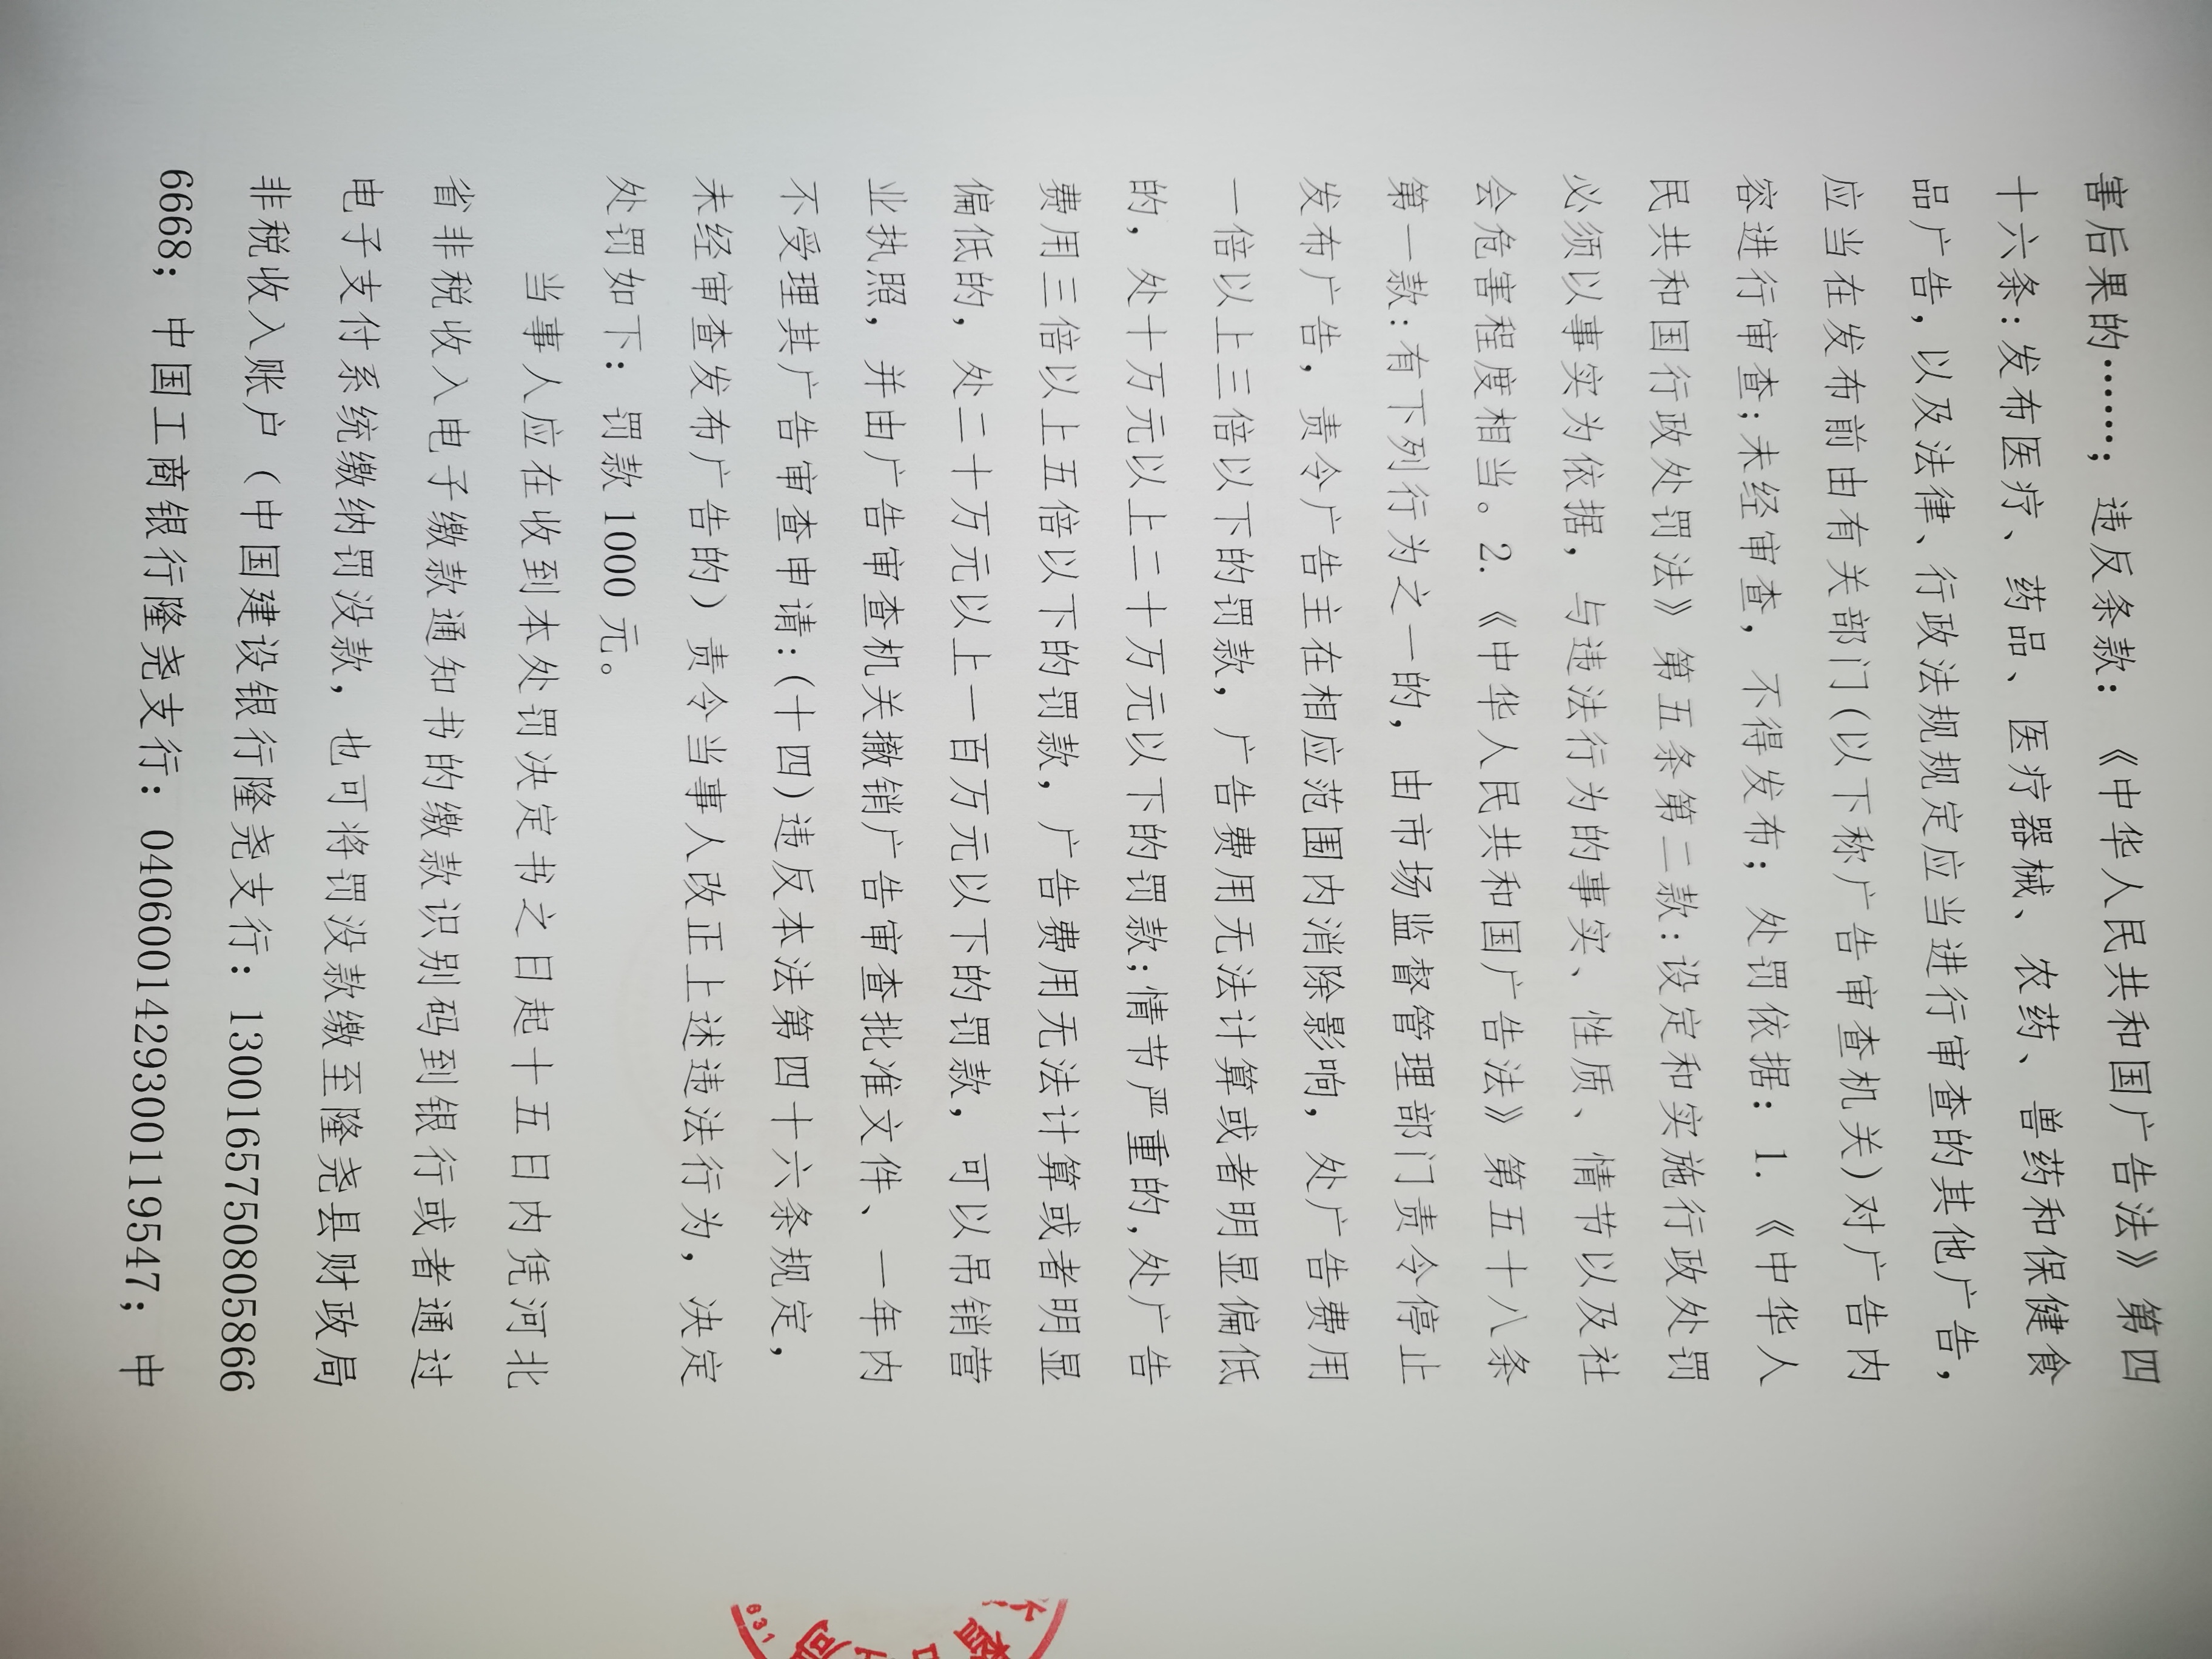 害后果的……；违反条款：《中华人民共和国广告法》第四
十六条：发布医疗、药品、医疗器械、农药、兽药和保健食
品广告，以及法律、行政法规规定应当进行审查的其他广告，
应当在发布前由有关部门(以下称广告审查机关)对广告内
容进行审查；未经审查，不得发布；处罚依据：1.《中华人
民共和国行政处罚法》第五条第二款：设定和实施行政处罚
必须以事实为依据，与违法行为的事实、性质、情节以及社
会危害程度相当。2.《中华人民共和国广告法》第五十八条
第一款：有下列行为之一的，由市场监督管理部门责令停止
发布广告，责令广告主在相应范围内消除影响，处广告费用
一倍以上三倍以下的罚款，广告费用无法计算或者明显偏低
的，处十万元以上二十万元以下的罚款；情节严重的，处广告
费用三倍以上五倍以下的罚款，广告费用无法计算或者明显
偏低的，处二十万元以上一百万元以下的罚款，可以吊销营
业执照，并由广告审查机关撤销广告审查批准文件、一年内
不受理其广告审查申请：(十四)违反本法第四十六条规定，
未经审查发布广告的）责令当事人改正上述违法行为，决定
处罚如下：罚款1000元。
当事人应在收到本处罚决定书之日起十五日内凭河北
省非税收入电子缴款通知书的缴款识别码到银行或者通过
电子支付系统缴纳罚没款，也可将罚没款缴至隆尧县财政局
非税收入账户（中国建设银行隆尧支行：13001657508058 66
6668；中国工商银行隆尧支行：0406001429300119547；中
631